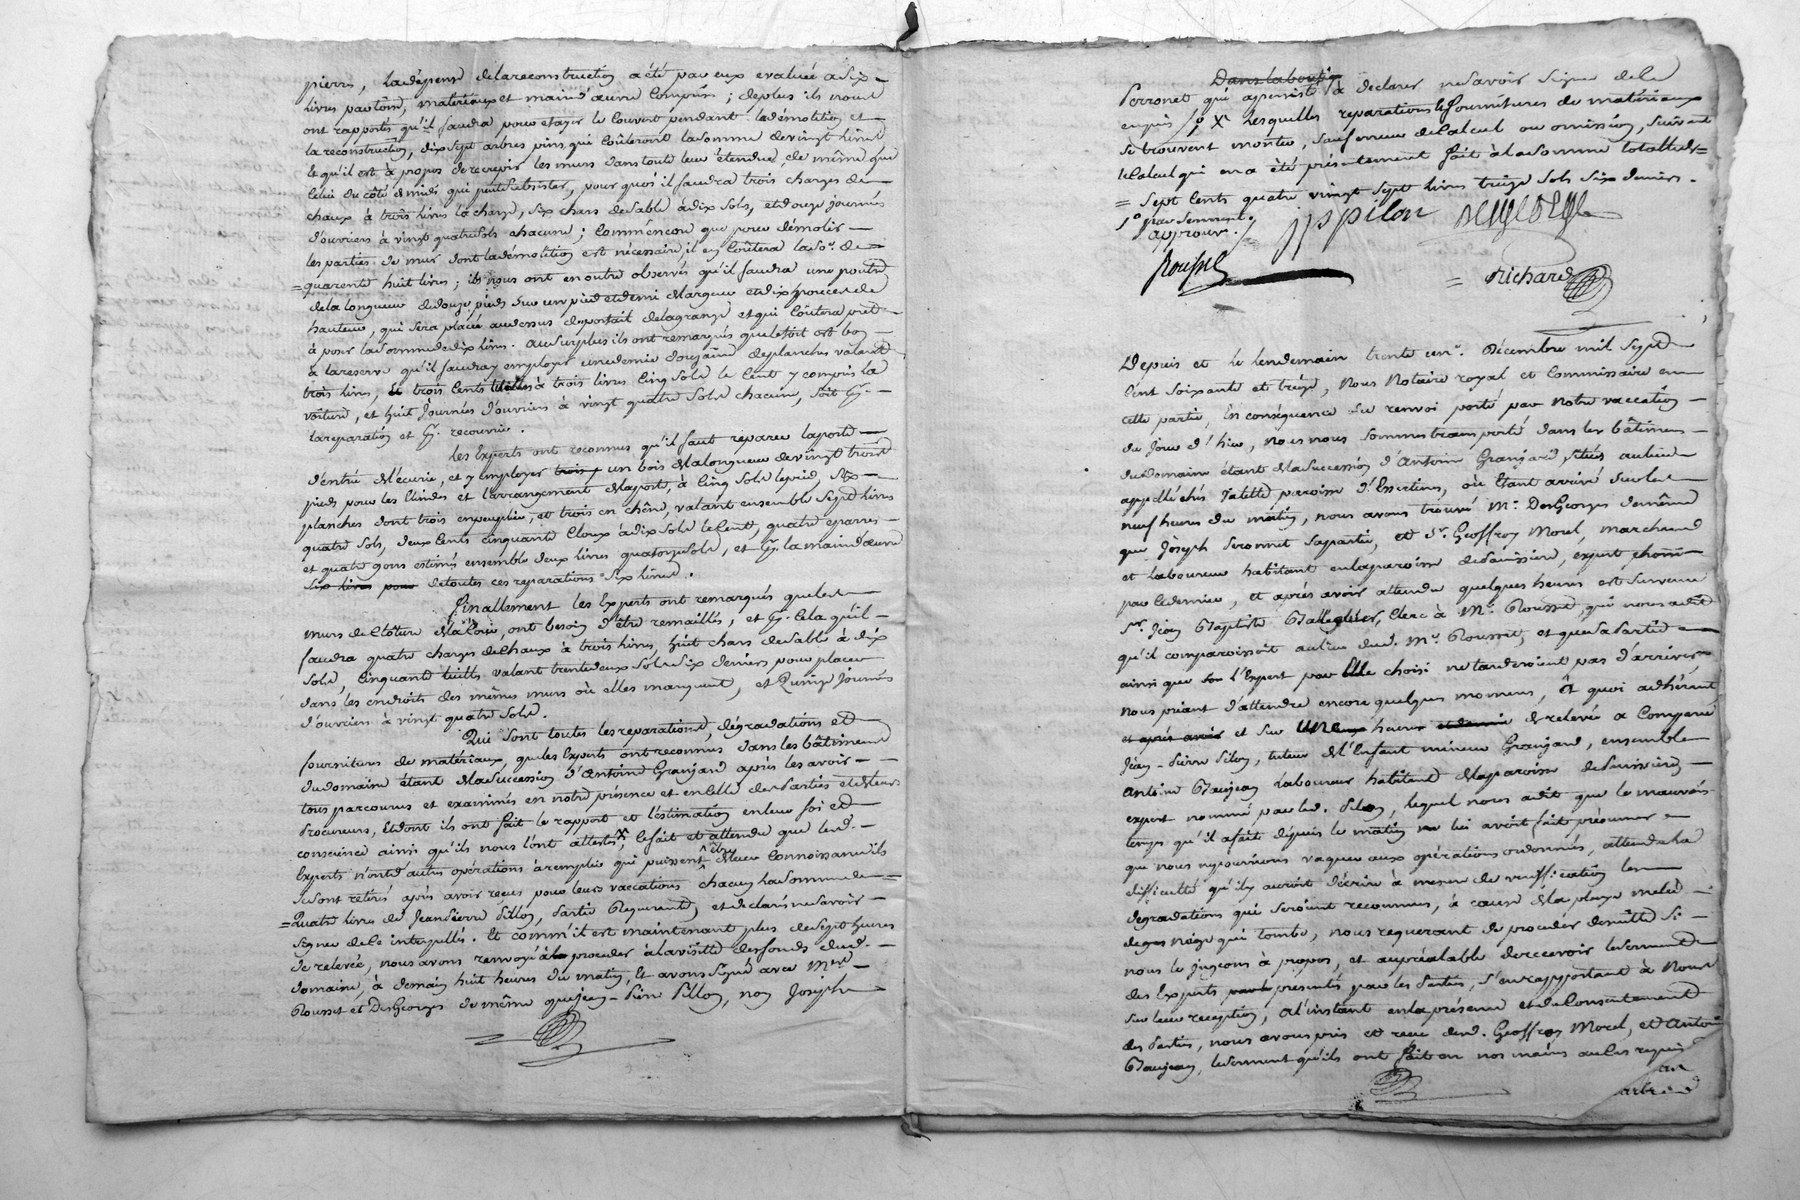 pierre, la dépense de la reconstruction a été par eux evaluée a dix
livres par toise, materiaux et main d'œuvre compris; de plus ils nous
ont rapportés qu'il faudra pour etayer le couvert pendant la démolition et
la reconstruction, dix sept arbres pins qui coûteront la somme de vingt livres
le qu'il est à propos de recrepir les murs dans toute leur étendue, de même que
celui du côté de midi qui peut subsister, pour quoi il faudra trois charges de
chaux à trois livres la charge, six chars de sable à dix sols, et douze journées
d'ouvriers à vingt quatre sols chacune; commencon que pour démolir
les parties de mur dont la démolition est nécessaire, il en coûtera la so. de
= quarente huit livres; ils nous ont en outre observés qu'il faudra une poutre
de la longueur de douze pieds sur un pied et demi de largeur et dix pouces de
hauteur, qui sera placée au dessus du portail de la grange et qui coûtera prete
à poser la somme de dix livres. au surplus ils ont remarqués que le toit est bon
a la reserve qu'il faudra y employer une demie douzaine de planches valant
trois livres, et trois cents tuiles à trois livres cinq sols le cent y compris la
voiture, et huit journées d'ouvriers à vingt quatre sols chacune, soit pr.
la reparation et pr. recouvrir.
Les Experts ont reconnus qu'il faut reparer la porte
d'entrée de l'écurie, et y employer trois un bois de la longueur de vingt trois
pieds pour les linteaux et l'arrangement de la porte, à cinq sols le pied, six
planches dont trois en peuplier, et trois en chêne, valant ensemble sept livres
quatre sols, deux cents cinquante cloux à dix sols le cent, quatre eparres
et quatre gons estimés ensemble deux livres quatorze sols, et pr. la main d'œuvre
six livres pour de toutes ces reparations six livres.
Finallement les Experts ont remarqués que les
murs de clôture de la cour, ont besoin d'être remaillés, et pr. cela qu'il
faudra quatre charges de chaux à trois livres, huit chars de sable à dix
sols, cinquante tuilles valant trente deux sols six deniers pour placer
dans les endroits des mêmes murs où elles manquent, et quinze journées
d'ouvriers à vingt quatre sols.
Qui sont toutes les reparations, dégradations et
fournitures de matériaux, que les Experts ont reconnues dans les bâtimens
du domaine étant de la succession d'Antoine Granjard après les avoir
tous parcourus et examinés en notre présence et en celle des Parties et de leurs
Procureurs, et dont ils ont fait le rapport et l'estimation en leur foi et
conscience ainsi qu'ils nous l'ont attestés X, ce fait et attendu que les d.
Experts n'ont d'autres opérations à remplir qui puissent être de leur connoissance ils
se sont retirés après avoir reçus pour leurs vaccations chacun la somme de =
= Quatre livres de Jean Pierre Pillon, Partie Requerante, et declarés ne savoir
signer de ce interpellés. Et comm'il est maintenant plus de sept heures
de relevée, nous avons renvoyé à la proceder à la visitte des fonds dud.
domaine, à demain huit heures du matin, et avons signé avec Mes
Rousset et DesGeorges de même que Jean-Pierre Pillon, non Joseph
Dans la boutique
Perronet qui a persisté à declarer ne savoir signer de ce
enquis 1° X lesquelles reparations & fournitures de matériaux
se trouvent montées, sauf erreur de calcul ou omission, suivant
le calcul qui en a été présentement fait à la somme totalle de =
= sept cents quatre vingt sept livres treize sols six deniers.
1° par serment
approuv. jppilon desgeorge
Rousset
= Richard
Depuis et le lendemain trente un. Décembre mil sept
cent soixante et treize, nous Notaire royal et commissaire en
cette partie, en conséquence du renvoi porté par notre vaccation
du jour d'hier, nous nous sommes transporté dans les bâtimens
du domaine étant de la succession d'Antoine Granjard, situés au lieu
appellé chés Jalette paroisse d'Essertines, où étant arrivé sur les
neuf heures du matin, nous avons trouvé Me. DesGeorges de même
que Joseph Peronnet sa partie, et Sr. Geoffroy Morel, marchand
et laboureur habitant en la paroisse de Saussien, expert choisi
par ce dernier, et après avoir attendu quelques heures est survenu
Sr. Jean Baptiste Balleydier, clerc à Me. Rousset, qui nous a dit
qu'il comparoissoit au lieu dud. Me. Rousset, et que sa Partie
ainsi que son l'Expert par elle choisi ne tarderoient pas d'arriver
nous priant d'attendre encore quelques momens, à quoi adhérant
et après avoir et sur une heure et demie de relevée a comparu
Jean-Pierre Pilon, tuteur de l'enfant mineur Granjard, ensemble
Antoine Baujean laboureur habitant de la paroisse de Saussien,
expert nommé par led. Pilon, lequel nous a dit que le mauvais
temps qu'il a fait depuis le matin lui avoit fait présumer
que nous ne pourrions vaquer aux opérations ordonnées, attendu la
difficulté qu'il y auroit d'écrire à mesure de vérification les
dégradations qui seroient reconnues, à cause de la pluye melée
de neige qui tombe, nous requerant de procéder de suitte si
nous le jugeons à propos, et au préalable de recevoir le serment
des Experts presentés par les Parties, s'en rapportant à Nous
sur leur reception, à l'instant en la présence et du consentement
des Parties, nous avons pris et reçu dud. Geoffroy Morel, et Antoine
Baujean, le serment qu'ils ont fait en nos mains au cas requis